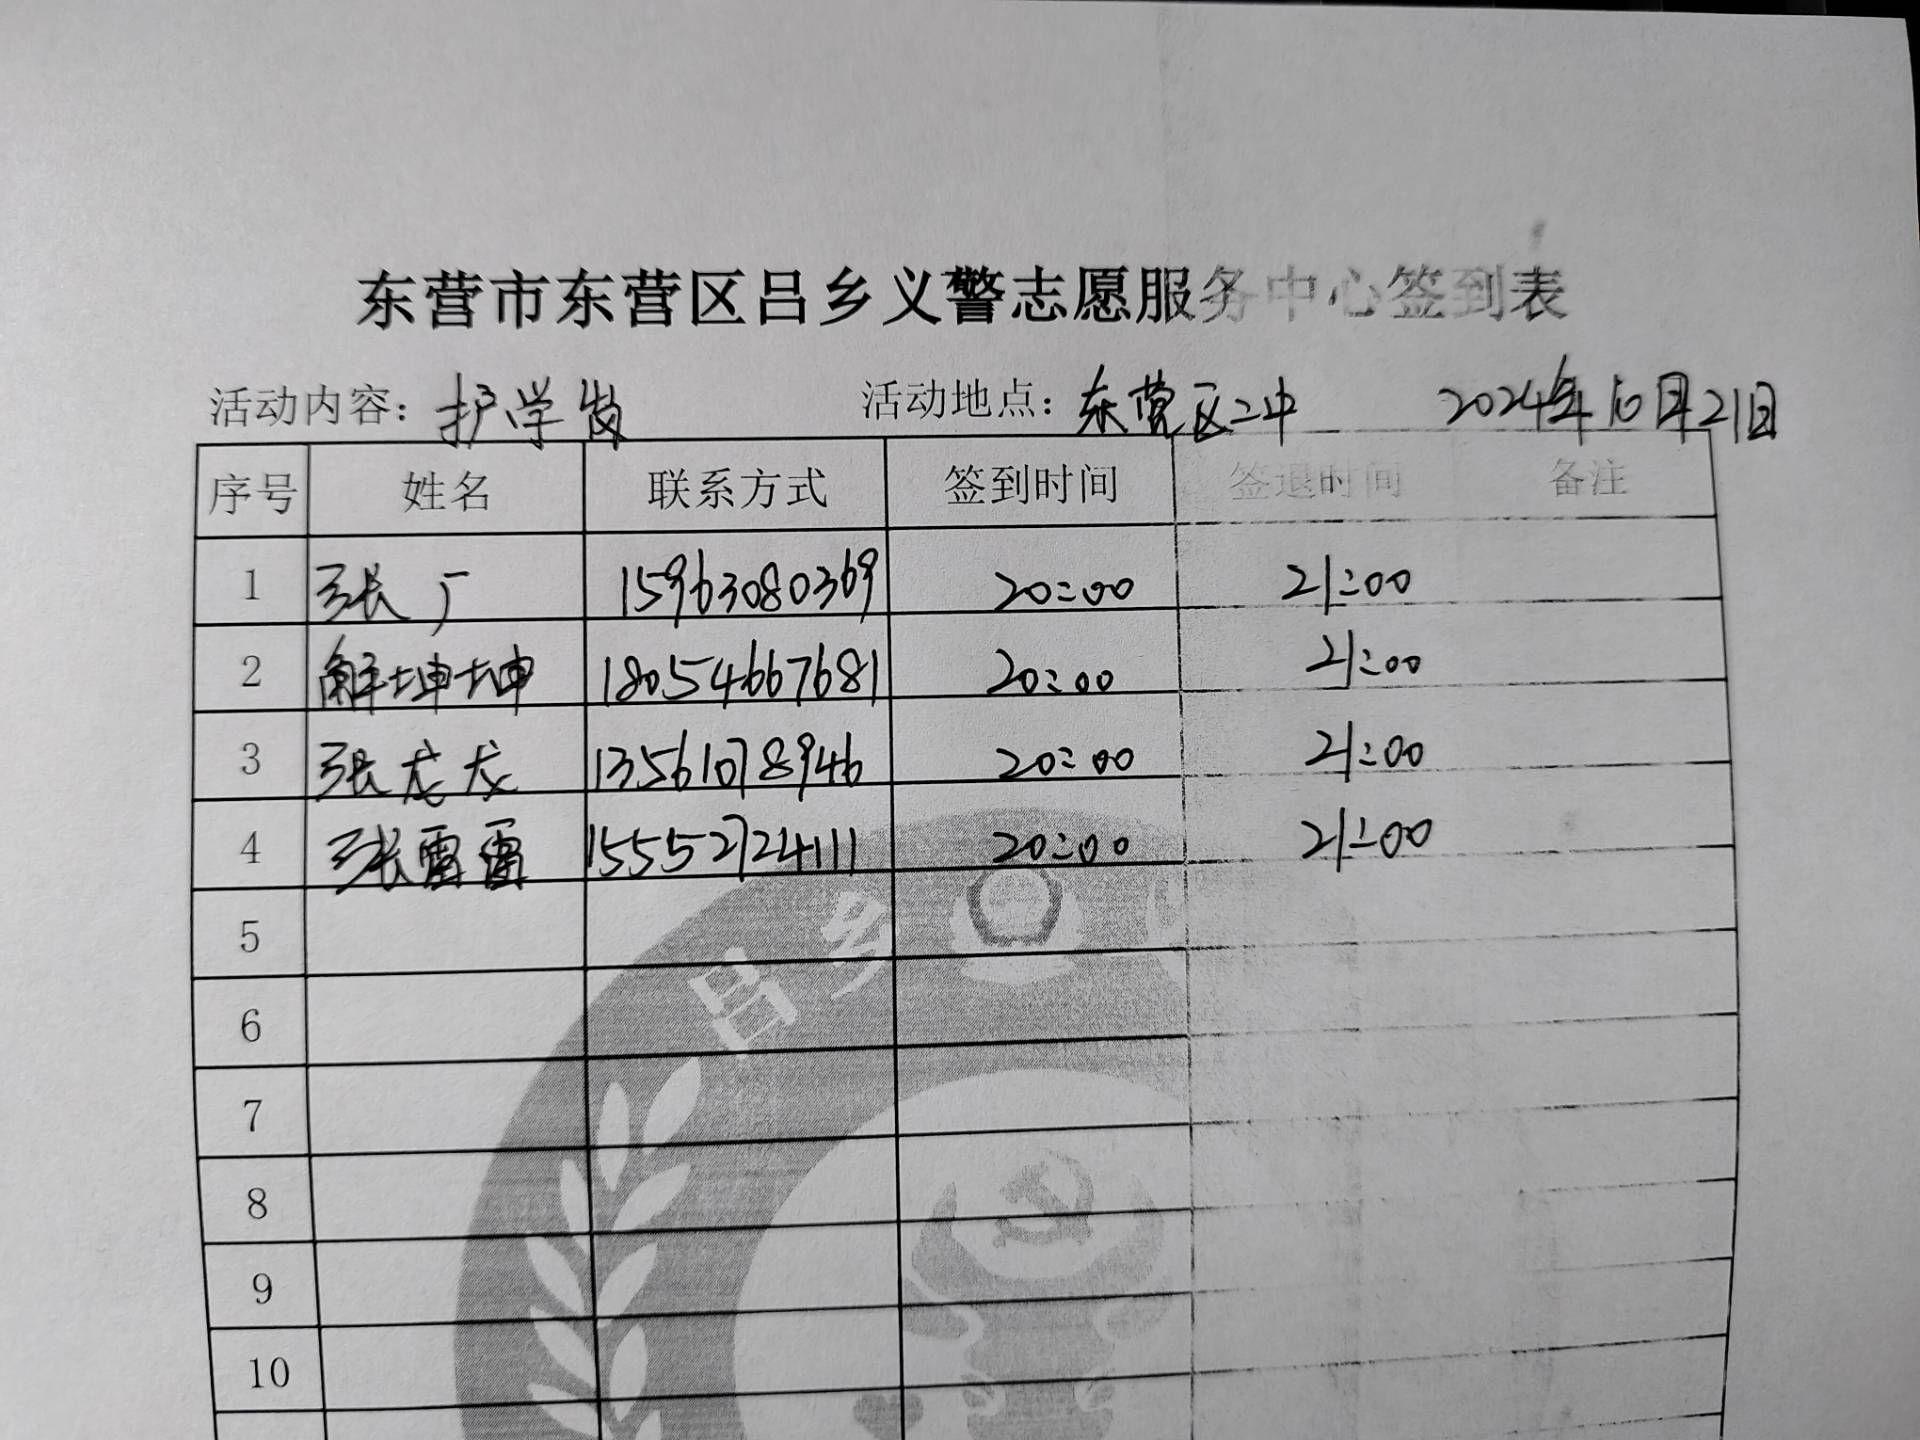 东营市东营区吕乡义警志愿服务中心签到表
活动内容：护学岗 活动地点：东营区二中 2024年10月21日
序号 姓名 联系方式 签到时间 签退时间 备注
1 张广 15963080369 20:00 21:00
2 解坤坤 18054667681 20:00 21:00
3 张龙龙 13561078946 20:00 21:00
4 张雷雷 15552724111 20:00 21:00
5
6
7
8
9
10
吕乡